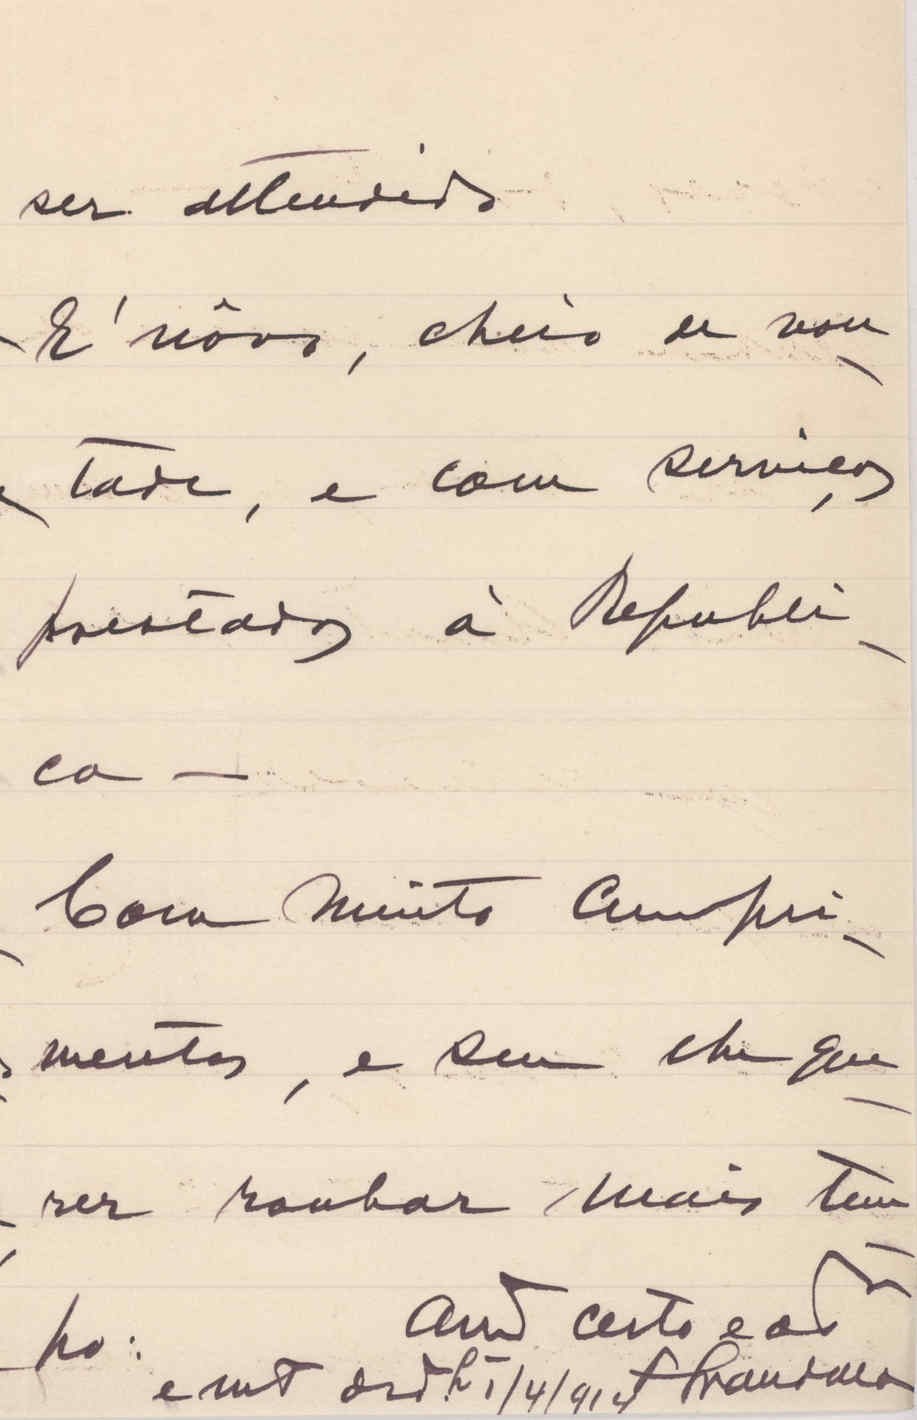 ser attendido
E' nôvo, cheio de von
tade, e com serviços
prestados à Republi
ca —
Com muito cumpri
mentos, e sem lhe que
rer roubar mais tem
po: Amº certo e
e mtº 1/4/914